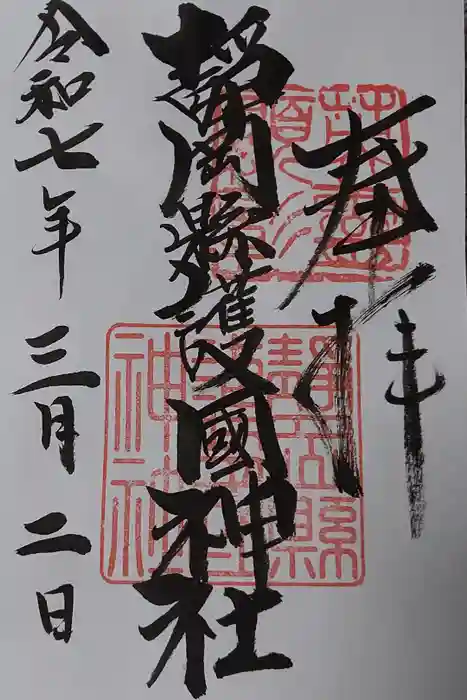 奉拝
靜岡縣護國神社
令和七年三月二日
靜岡縣護國神社